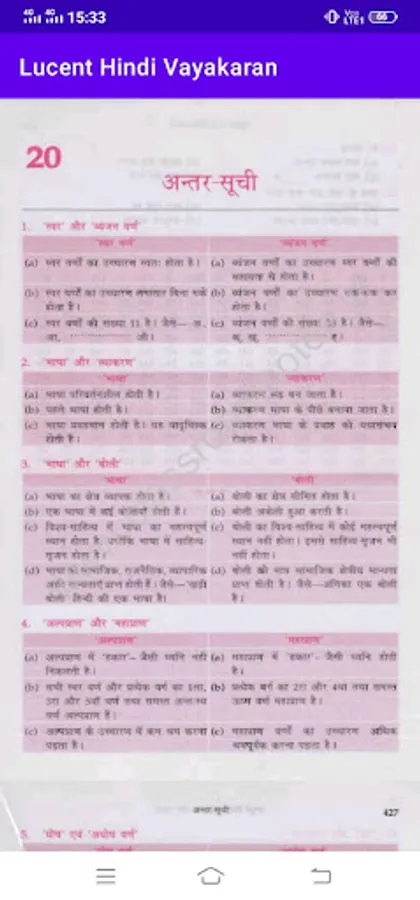 15:33
66
Lucent Hindi Vayakaran
20
अन्तर-सूची
1. 'स्वर' और 'व्यंजन वर्ण'
'स्वर वर्ण' 'व्यंजन वर्ण'
(a) स्वर वर्णों का उच्चारण स्वतः होता है। (a) व्यंजन वर्णों का उच्चारण स्वर वर्णों की
सहायता से होता है।
(b) स्वर वर्णों का उच्चारण लगातार बिना रुके (b) व्यंजन वर्णों का उच्चारण रुक-रुक कर
होता है। होता है।
(c) स्वर वर्णों की संख्या 11 है। जैसे— अ, (c) व्यंजन वर्णों की संख्या 33 है। जैसे—
आ, ............ औ। क, ख, ............ ह।
2. 'भाषा' और 'व्याकरण'
'भाषा' 'व्याकरण'
(a) भाषा परिवर्तनशील होती है। (a) व्याकरण रूढ़ बन जाता है।
(b) पहले भाषा होती है। (b) व्याकरण भाषा के पीछे बनाया जाता है।
(c) भाषा प्रवहमान होती है। यह यादृच्छिक (c) व्याकरण भाषा के प्रवाह को यथासंभव
होती है। रोकता है।
3. 'भाषा' और 'बोली'
'भाषा' 'बोली'
(a) भाषा का क्षेत्र व्यापक होता है। (a) बोली का क्षेत्र सीमित होता है।
(b) एक भाषा में कई बोलियाँ होती हैं। (b) बोली अकेली हुआ करती है।
(c) विश्व-साहित्य में भाषा का महत्त्वपूर्ण (c) बोली का विश्व-साहित्य में कोई महत्त्वपूर्ण
स्थान होता है, क्योंकि भाषा में साहित्य- स्थान नहीं होता। इसमें साहित्य सृजन भी
सृजन होता है। नहीं होता।
(d) भाषा को सामाजिक, राजनैतिक, व्यापारिक (d) बोली को मात्र सामाजिक क्षेत्रीय मान्यता
आदि मान्यताएँ प्राप्त होती हैं। जैसे—'खड़ी प्राप्त होती है। जैसे—अंगिका एक बोली
बोली' हिन्दी की एक भाषा है। है।
4. 'अल्पप्राण' और 'महाप्राण'
'अल्पप्राण' 'महाप्राण'
(a) अल्पप्राण में 'हकार'– जैसी ध्वनि नहीं (a) महाप्राण में 'हकार'– जैसी ध्वनि होती
निकलती है। है।
(b) सभी स्वर वर्ण और प्रत्येक वर्ग का 1ला, (b) प्रत्येक वर्ग का 2रा और 4था तथा समस्त
3रा और 5वाँ वर्ण तथा समस्त अन्तःस्थ ऊष्म वर्ण महाप्राण हैं।
वर्ण अल्पप्राण हैं।
(c) अल्पप्राण के उच्चारण में कम श्रम करना (c) महाप्राण वर्णों का उच्चारण अधिक
पड़ता है। श्रमपूर्वक करना पड़ता है।
अन्तर सूची 427
5. 'घोष' एवं 'अघोष वर्ण'